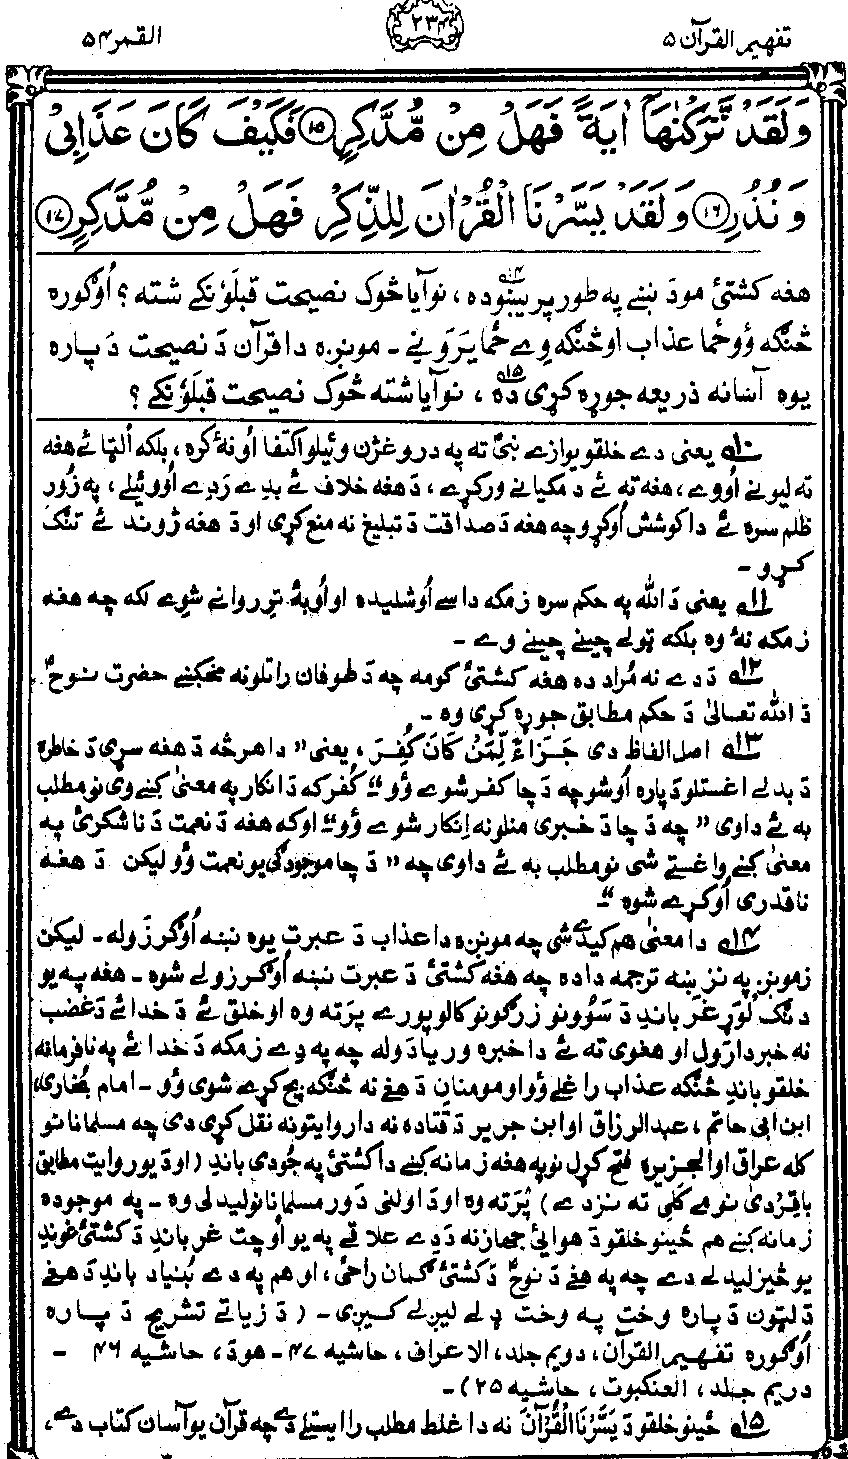 تفهیم القرآن ۵
۲۳۴
القمر ۵۴
وَلَقَدْ تَّرَكْنٰهَآ اٰيَةً فَهَلْ مِنْ مُّدَّكِرٍ ⑮ فَكَيْفَ كَانَ عَذَابِيْ
وَنُذُرِ ⑯ وَلَقَدْ يَسَّرْنَا الْقُرْاٰنَ لِلذِّكْرِ فَهَلْ مِنْ مُّدَّكِرٍ ⑰
هغه کشتئ مو دَ نښې په طور پریښوده ۱۴؎، نو آیا څوک نصیحت قبلَوُنکے شته؟ اُوګوره
څنګه وُو ځما عذاب او څنګه وِے ځما یَرَونې۔ مونږه دا قرآن دَ نصیحت دَ پاره
یوه آسانه ذریعه جوړه کړی ده ۱۵؎، نو آیا شته څوک نصیحت قبلَوُنکے؟
۱۰؎ یعنی دے خلقو یوازے نبیؑ ته په دروغژن وئیلو اکتفا اُونهٔ کړه، بلکه اُلټا ئے هغه
ته لیونے اُووے، هغه ته ئے دمکیانے ورکړے، دَ هغه خلاف ئے بدے رَدِے اُووئیلے، په زُور
ظلم سره ئے دا کوشش اُوکړو چه هغه دَ صداقت دَ تبلیغ نه منع کړی او دَ هغه ژوند ئے تنګ
کړو۔
۱۱؎ یعنی دَ الله په حکم سره زمکه داسے اُوشلیده او اُوبهٔ ترِ روانے شوے لکه چه هغه
زمکه نهٔ وه بلکه ټولے چینے چینے وے۔
۱۲؎ دَ دے نه مُراد ده هغه کشتئ کومه چه دَ طوفان راتلونه مخکښے حضرت نوحؑ
دَ الله تعالیٰ دَ حکم مطابق جوړه کړی وه۔
۱۳؎ اصل الفاظ دی جَزَآءً لِّمَنْ كَانَ كُفِرَ، یعنی ”دا هر څه دَ هغه سړی دَ خاطره
دَ بدلے اغستلو دَ پاره اُوشو چه دَ چا کفر شوے وُو“۔ کُفر که دَ انکار په معنیٰ کښے وی نو مطلب
به ئے داوی ”چه دَ چا دَ خبری منلو نه اِنکار شوے وُو“ او که هغه دَ نعمت دَ ناشکرئ په
معنیٰ کښے واغستے شی نو مطلب به ئے داوی چه ”دَ چا موجودګی یو نعمت وُو لیکن دَ هغه
ناقدری اُوکړے شوه“۔
۱۴؎ دا معنیٰ هم کیدے شی چه مونږه دا عذاب دَ عبرت یوه نښه اُوګرزَوله۔ لیکن
زمونږ په نز ښه ترجمه داده چه هغه کشتئ دَ عبرت نښه اُوګرزولے شوه۔ هغه په یو
دنګ لُوړ غر باندِ دَ سَوُونو زرګونو کالو پورے پرَته وه او خلق ئے دَ خدائے دَ غضب
نه خبردارول او هغوی ته ئے دا خبره وریادوله چه په دِے زمکه دَ خدائے په نافرمانه
خلقو باندِ څنګه عذاب راغلے وُو او مومنان دَ هغے نه څنګه بچ کړے شوی وُو۔ امام بُخاری،
ابن ابی حاتم، عبدالرزاق او ابن جریر دَ قتاده نه دا روایتونه نقل کړی دی چه مسلمانانو
کله عراق او الجزیره فتح کول نو په هغه زمانه کښے دا کشتئ په جُودی باندِ (او دَ یو روایت مطابق
باقردیٰ نومے کلی ته نزدے) پَرته وه او دَ اولنی دَور مسلمانانو لیدلی وه۔ په موجوده
زمانه کښے هم ځینو خلقو دَ هوائی جهاز نه دَ دے علاقے په یو اُوچت غر باندِ دَ کشتئ غوندِ
یو څیز لیدلے دے چه په هغے دَ نوحؑ دَ کشتئ ګمان راځی، او هم په دے بُنیاد باندِ دَ هغے
دَ لټون دَ پاره وخت په وخت ډلے لیږلے کیږی۔ (دَ زیاتے تشریح دَ پاره
اُوګوره تفهیم القرآن، دویم جلد، الاعراف، حاشیه ۴۷۔ هود، حاشیه ۴۶ ۔
دریم جلد، العنکبوت، حاشیه ۲۵)۔
۱۵؎ ځینو خلقو دَ يَسَّرْنَا الْقُرْآنَ نه دا غلط مطلب را ایستلے دے چه قرآن یو آسان کتاب دے،